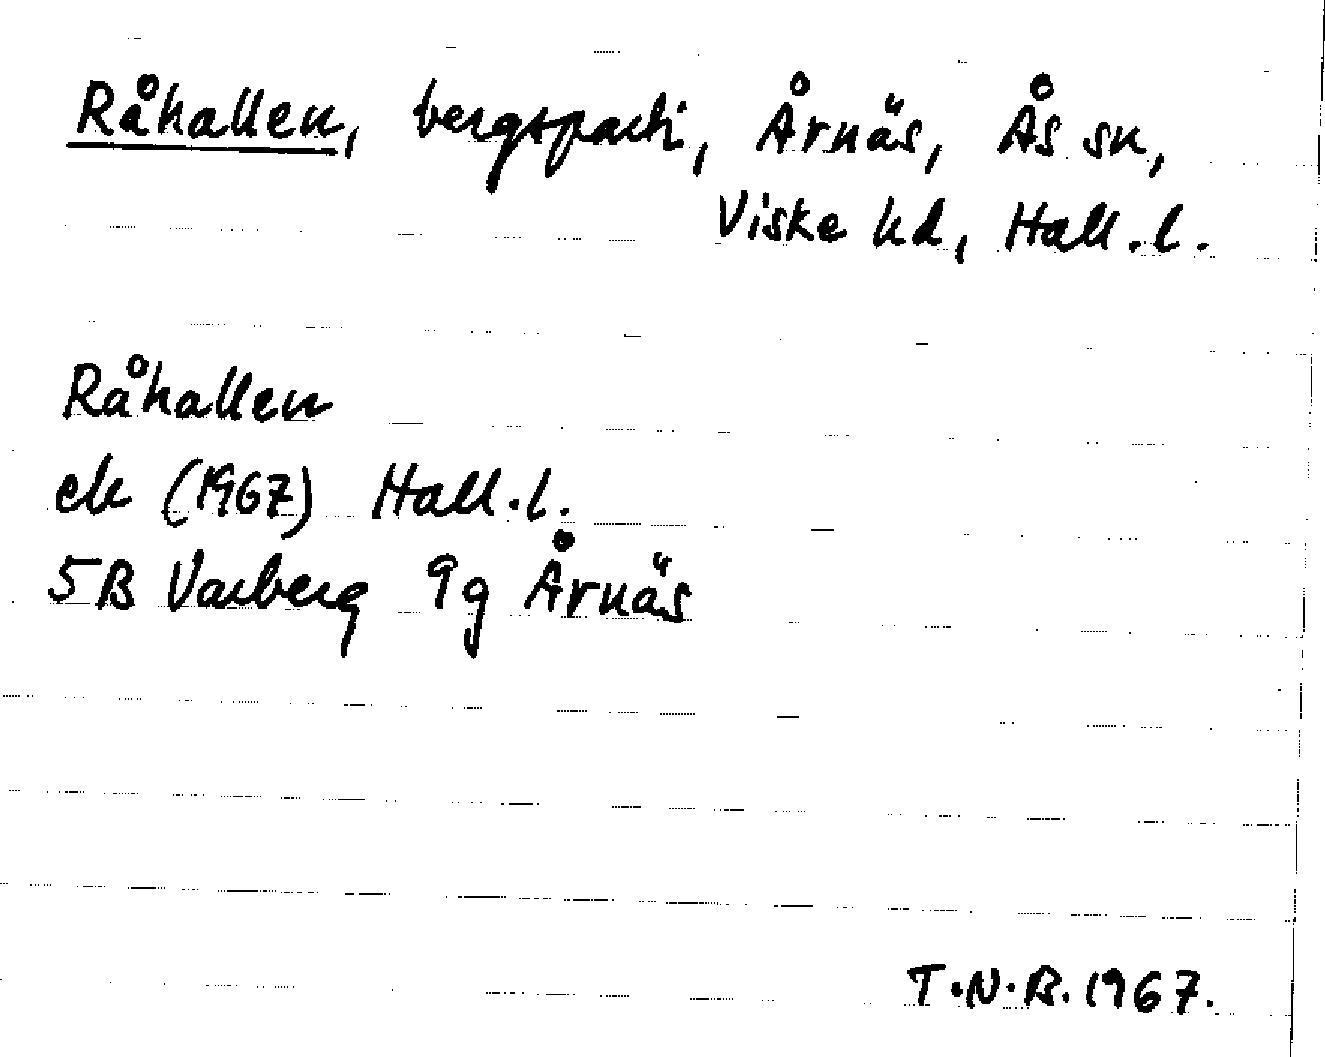 Råhallen, bergsparti, Årnäs, Ås sn,
Viske hd, Hall.l.
Råhallen
ek (1967) Hall.l.
5B Varberg 9g Årnäs
T.N.B. 1967.